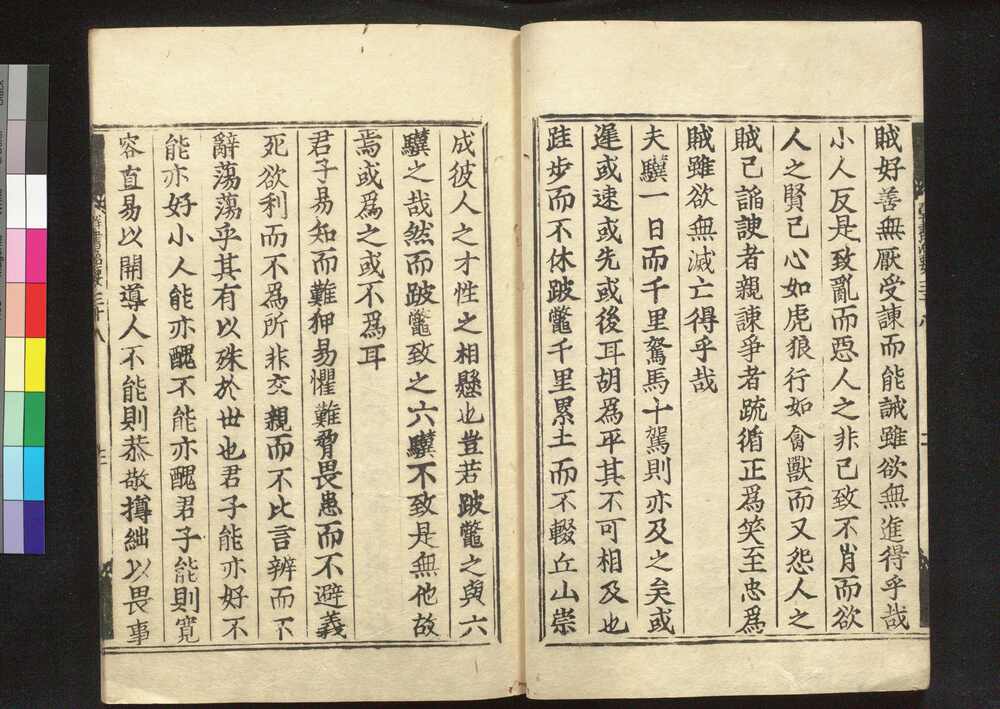 賊好善無厭受諫而能誡雖欲無進得乎哉
小人反是致亂而惡人之非己致不肖而欲
人之賢己心如虎狼行如禽獸而又怨人之
賊己謟諛者親諫爭者疏脩正爲笑至忠爲
賊雖欲無滅亡得乎哉
夫驥一日而千里駑馬十駕則亦及之矣或
遲或速或先或後耳胡爲乎其不可相及也
跬步而不休跛鼈千里累土而不輟丘山崇
成彼人之才性之相懸也豈若跛鼈之與六
驥之哉然而跛鼈致之六驥不致是無他故
焉或爲之或不爲耳
君子易知而難狎易懼難脅畏患而不避義
死欲利而不爲所非交親而不比言辨而不
辭蕩蕩乎其有以殊於世也君子能亦好不
能亦好小人能亦醜不能亦醜君子能則寬
容直易以開導人不能則恭敬撙絀以畏事
群書治要三十八